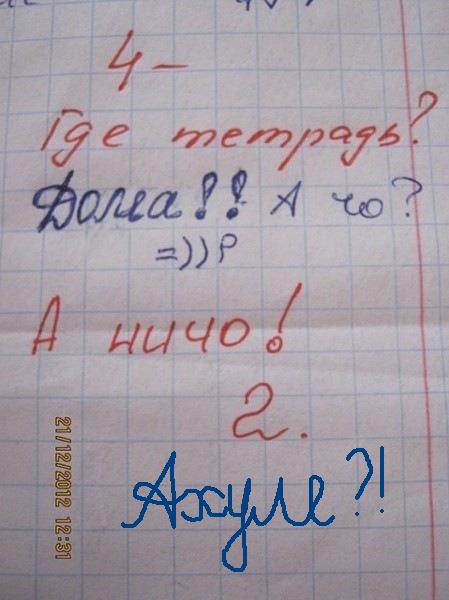 4-
Где тетрадь?
Дома!! А чо?
=)) P
А ничо!
2.
Ахуле?!
21/12/2012 12:31